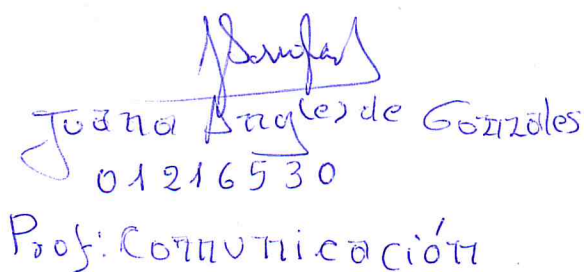 Juana Ang(e) de Gonzales
01216530
Prof: Comunicación